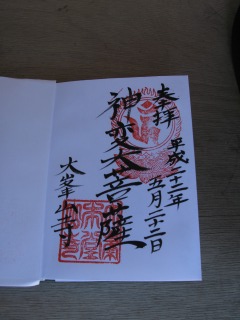 奉拝
平成二十二年
五月二十二日
神変大菩薩
大峯山寺